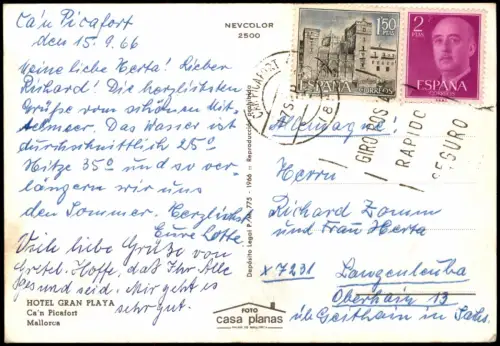 Ca'n Picafort
den 15.9.66
Meine liebe Herta! Lieber
Richard! Die herzlichsten
Grüße vom schönen Mit-
telmeer. Das Wasser ist
durchschnittlich 25°
Hitze 35° und so ver-
längern wir uns
den Sommer. Herzlichst
Eure Lotte
Viele liebe Grüße von
Gretel. Hoffe, daß Ihr Alle
gesund seid. Mir geht es
sehr gut.
HOTEL GRAN PLAYA
Ca'n Picafort
Mallorca
NEVCOLOR
2500
Depósito Legal P.M. 775 - 1966 - Reproducción prohibida
FOTO
casa planas
1'50
PTAS
ESPAÑA
CORREOS
2
PTAS
ESPAÑA
CORREOS
CA'N PICAFORT
GIRO POSTAL
RAPIDO
SEGURO
Alemagne!
Herrn
Richard Zomm
und Frau Herta
x 7231 Langenleuba
Oberhain 13
üb Geithain in Sachs.